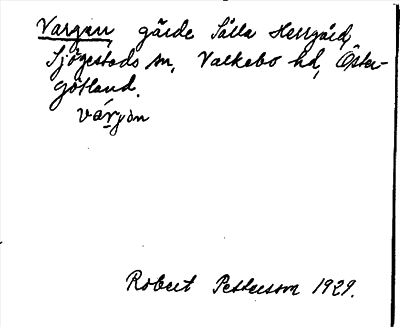 Vargan, gärde Sålla Herrgård,
Sjögestads sn, Valkebo hd, Öster-
götland.
várgan
Robert Petterson 1929.